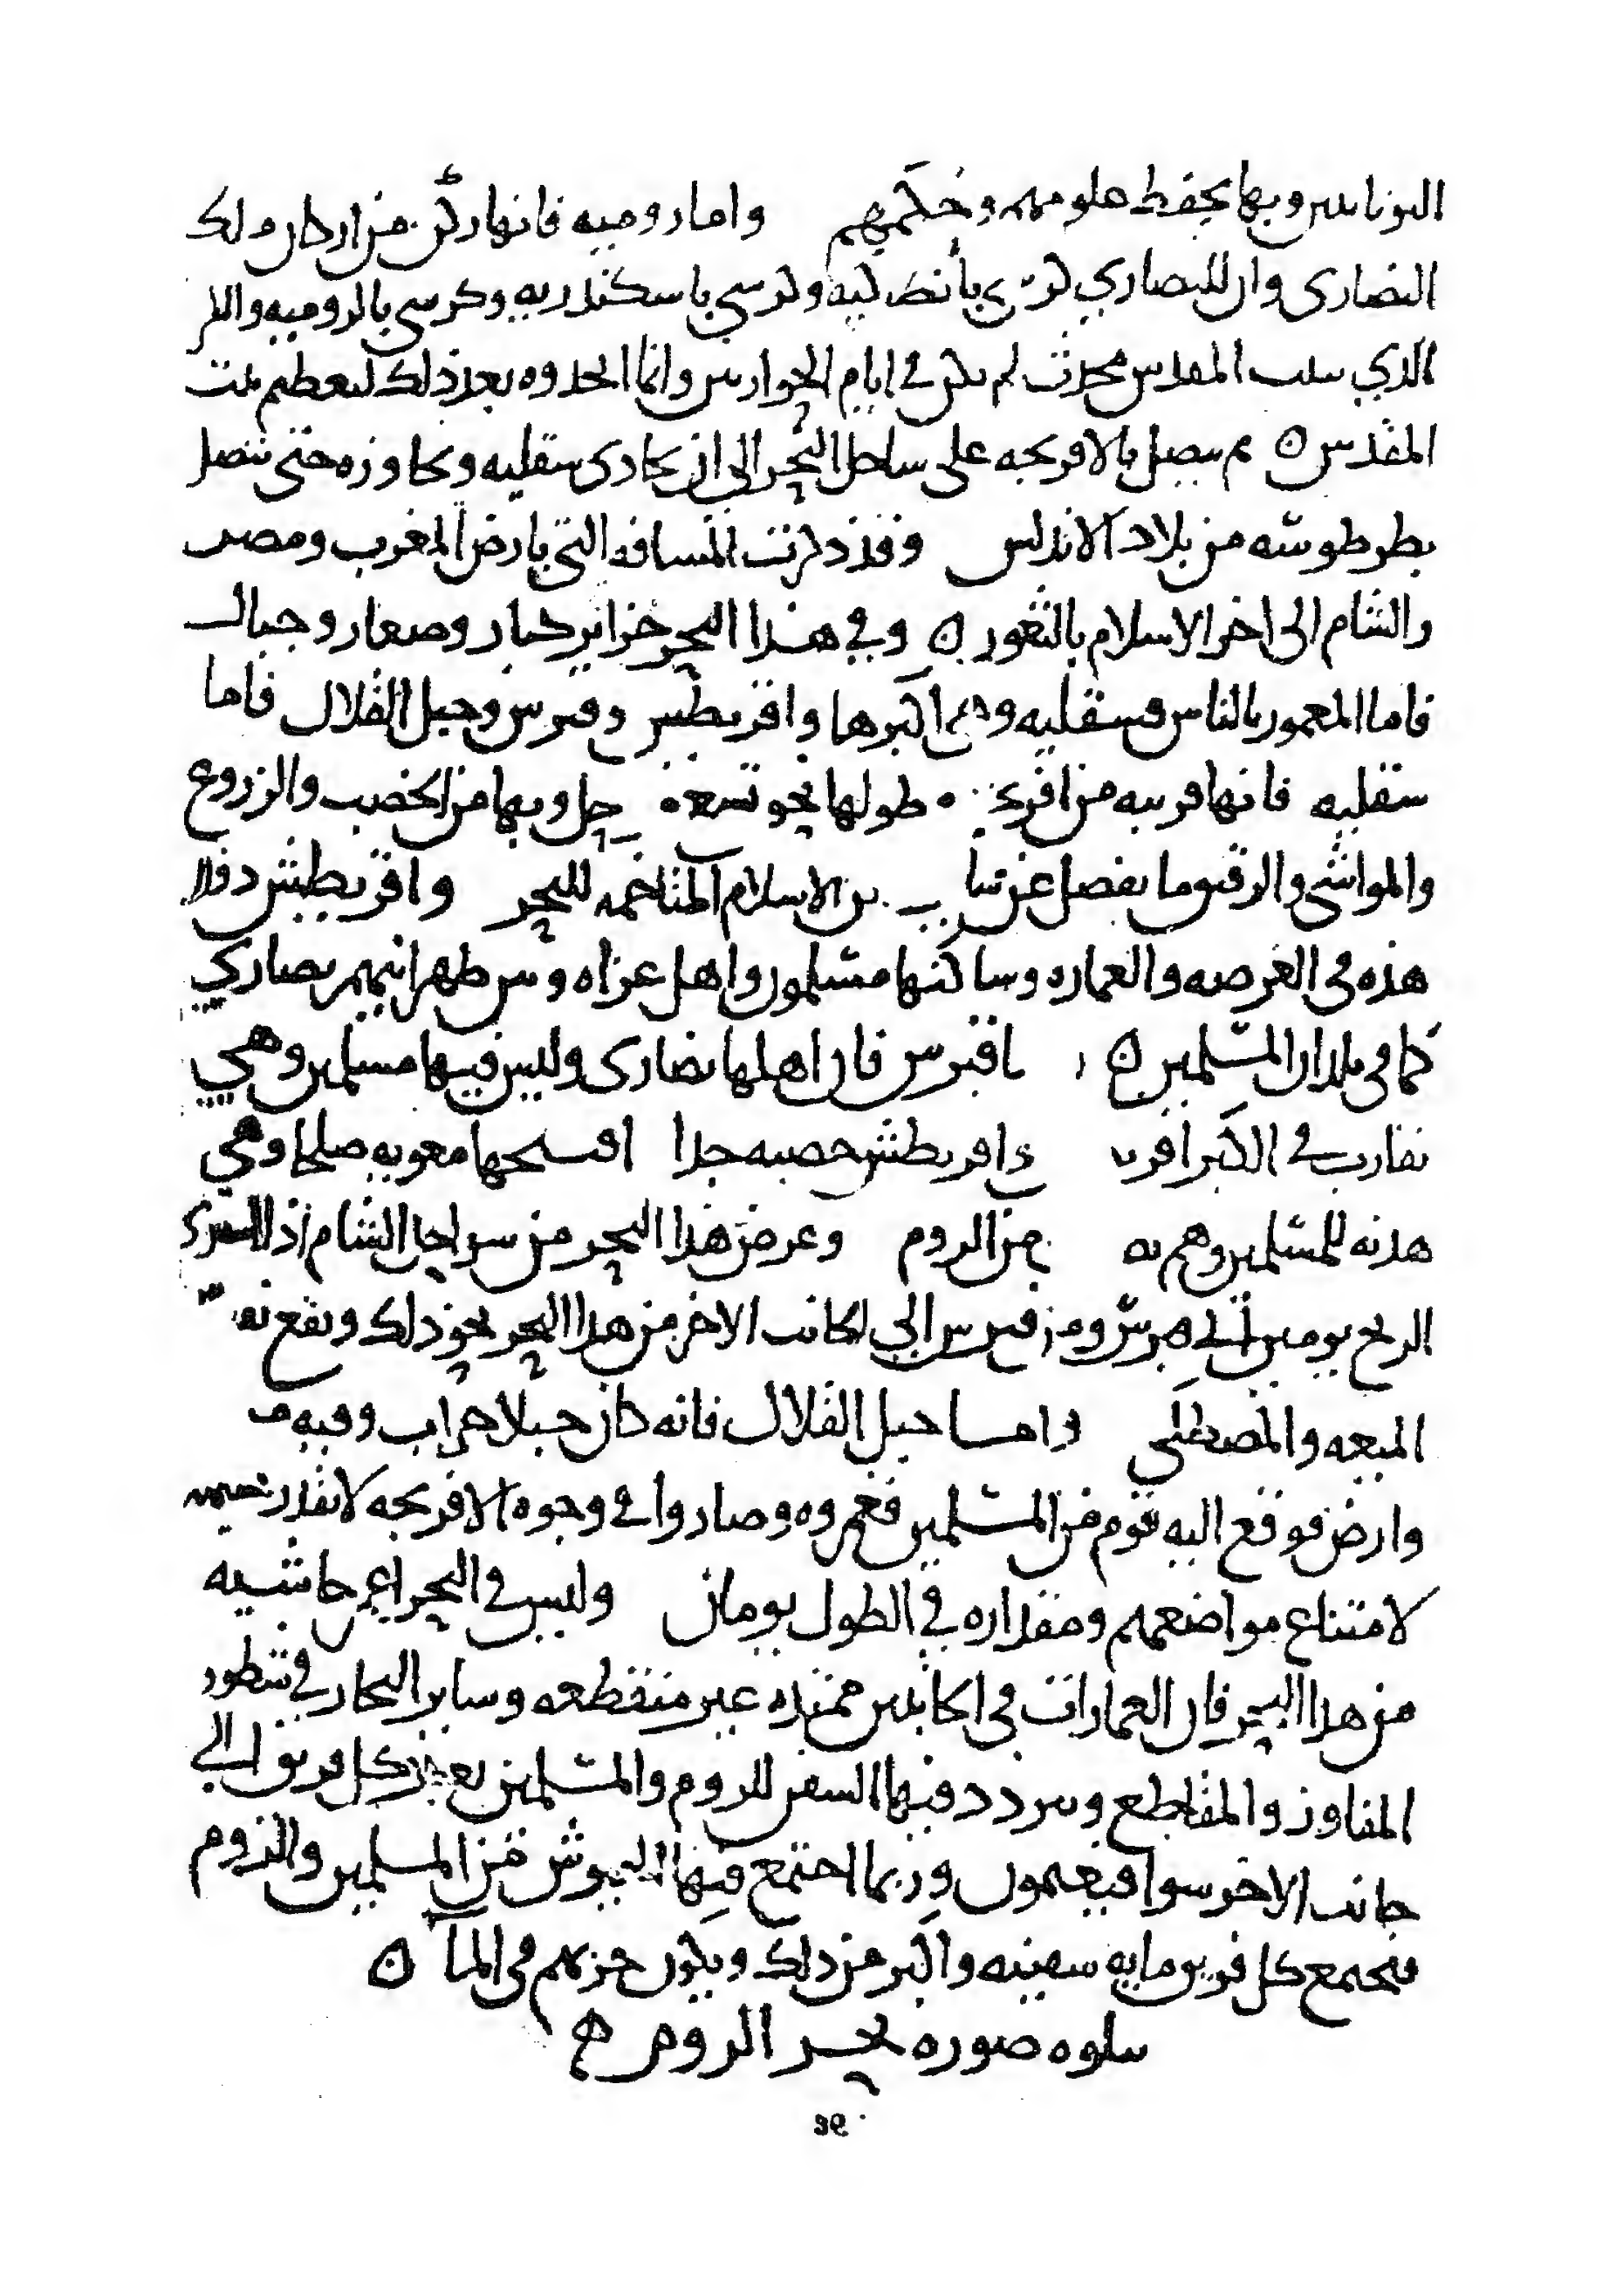 اليونانيين وبها يحفظ علومهم وحكمهم واما روميه فانها ركن من اركان ملك
النصارى وان للنصاري كرسي بأنطاكيه وكرسي باسكندريه وكرسي بالروميه والكرسي
الذي ببيت المقدس محدث لم يكن في ايام الحواريين وانما اتخذوه بعد ذلك لتعظيم بيت
المقدس ن ثم يتصل بالافرنجه على ساحل البحر الى ان يحاذى سقليه ويجاوزه حتى تتصل
بطرطوشه من بلاد الاندلس وقد ذكرت المسافه التي بارض المغرب ومصر
والشام الى اخر الاسلام بالثغور ن وفي هذا البحر جزاير كبار وصغار وجبال
فاما المعمور بالناس فسقليه وهي اكبرها واقريطش وقبرس وجبل القلال فاما
سقليه فانها قريبه من افرنجه طولها نحو تسعه حل وبها من الخصب والزروع
والمواشي والرقيق وما يفضل عن سا الاسلام المتاخمه للبحر واقريطش دون
هذه في العرصه والعماره وساكنها مسلمون واهل غزاه وبين ظهرانيهم نصاري
كما في بلدان المسلمين ن قبرس فان اهلها نصارى وليس فيها مسلمين وهي
تقارب في الكبر اقريطش خصبه جدا افتتحها معويه صلحا وهي
هدنه للمسلمين وهم من الروم وعرض هذا البحر من سواحل الشام اذا استوت
الريح يومين الى قبرس ومن قبرس الي الجانب الاخر من هذا البحر نحو ذلك ويقع
الميعه والمصطكى واما جبل القلال فانه كان جبلا خراب وفيه
وارض فوقع اليه قوم من المسلمين فعمروه وصاروا في وجوه الافرنجه لا يقدر عليهم
لامتناع مواضعهم ومقداره في الطول يومان وليس في البحر اعمر حاشيه
من هذا البحر فان العمارات في الجانبين ممتده غير منقطعه وساير البحار في شطوط
المفاوز والمقاطع ويتردد فيها السفن للروم والمسلمين كل فريق الي
جانب الاخر سوا فيغنمون وربما اجتمع فيها الجيوش من المسلمين والروم
فيجتمع كل فريق مايه سفينه واكثر من ذلك ويكون حربهم في الماآ ن
يتلوه صوره بحر الروم